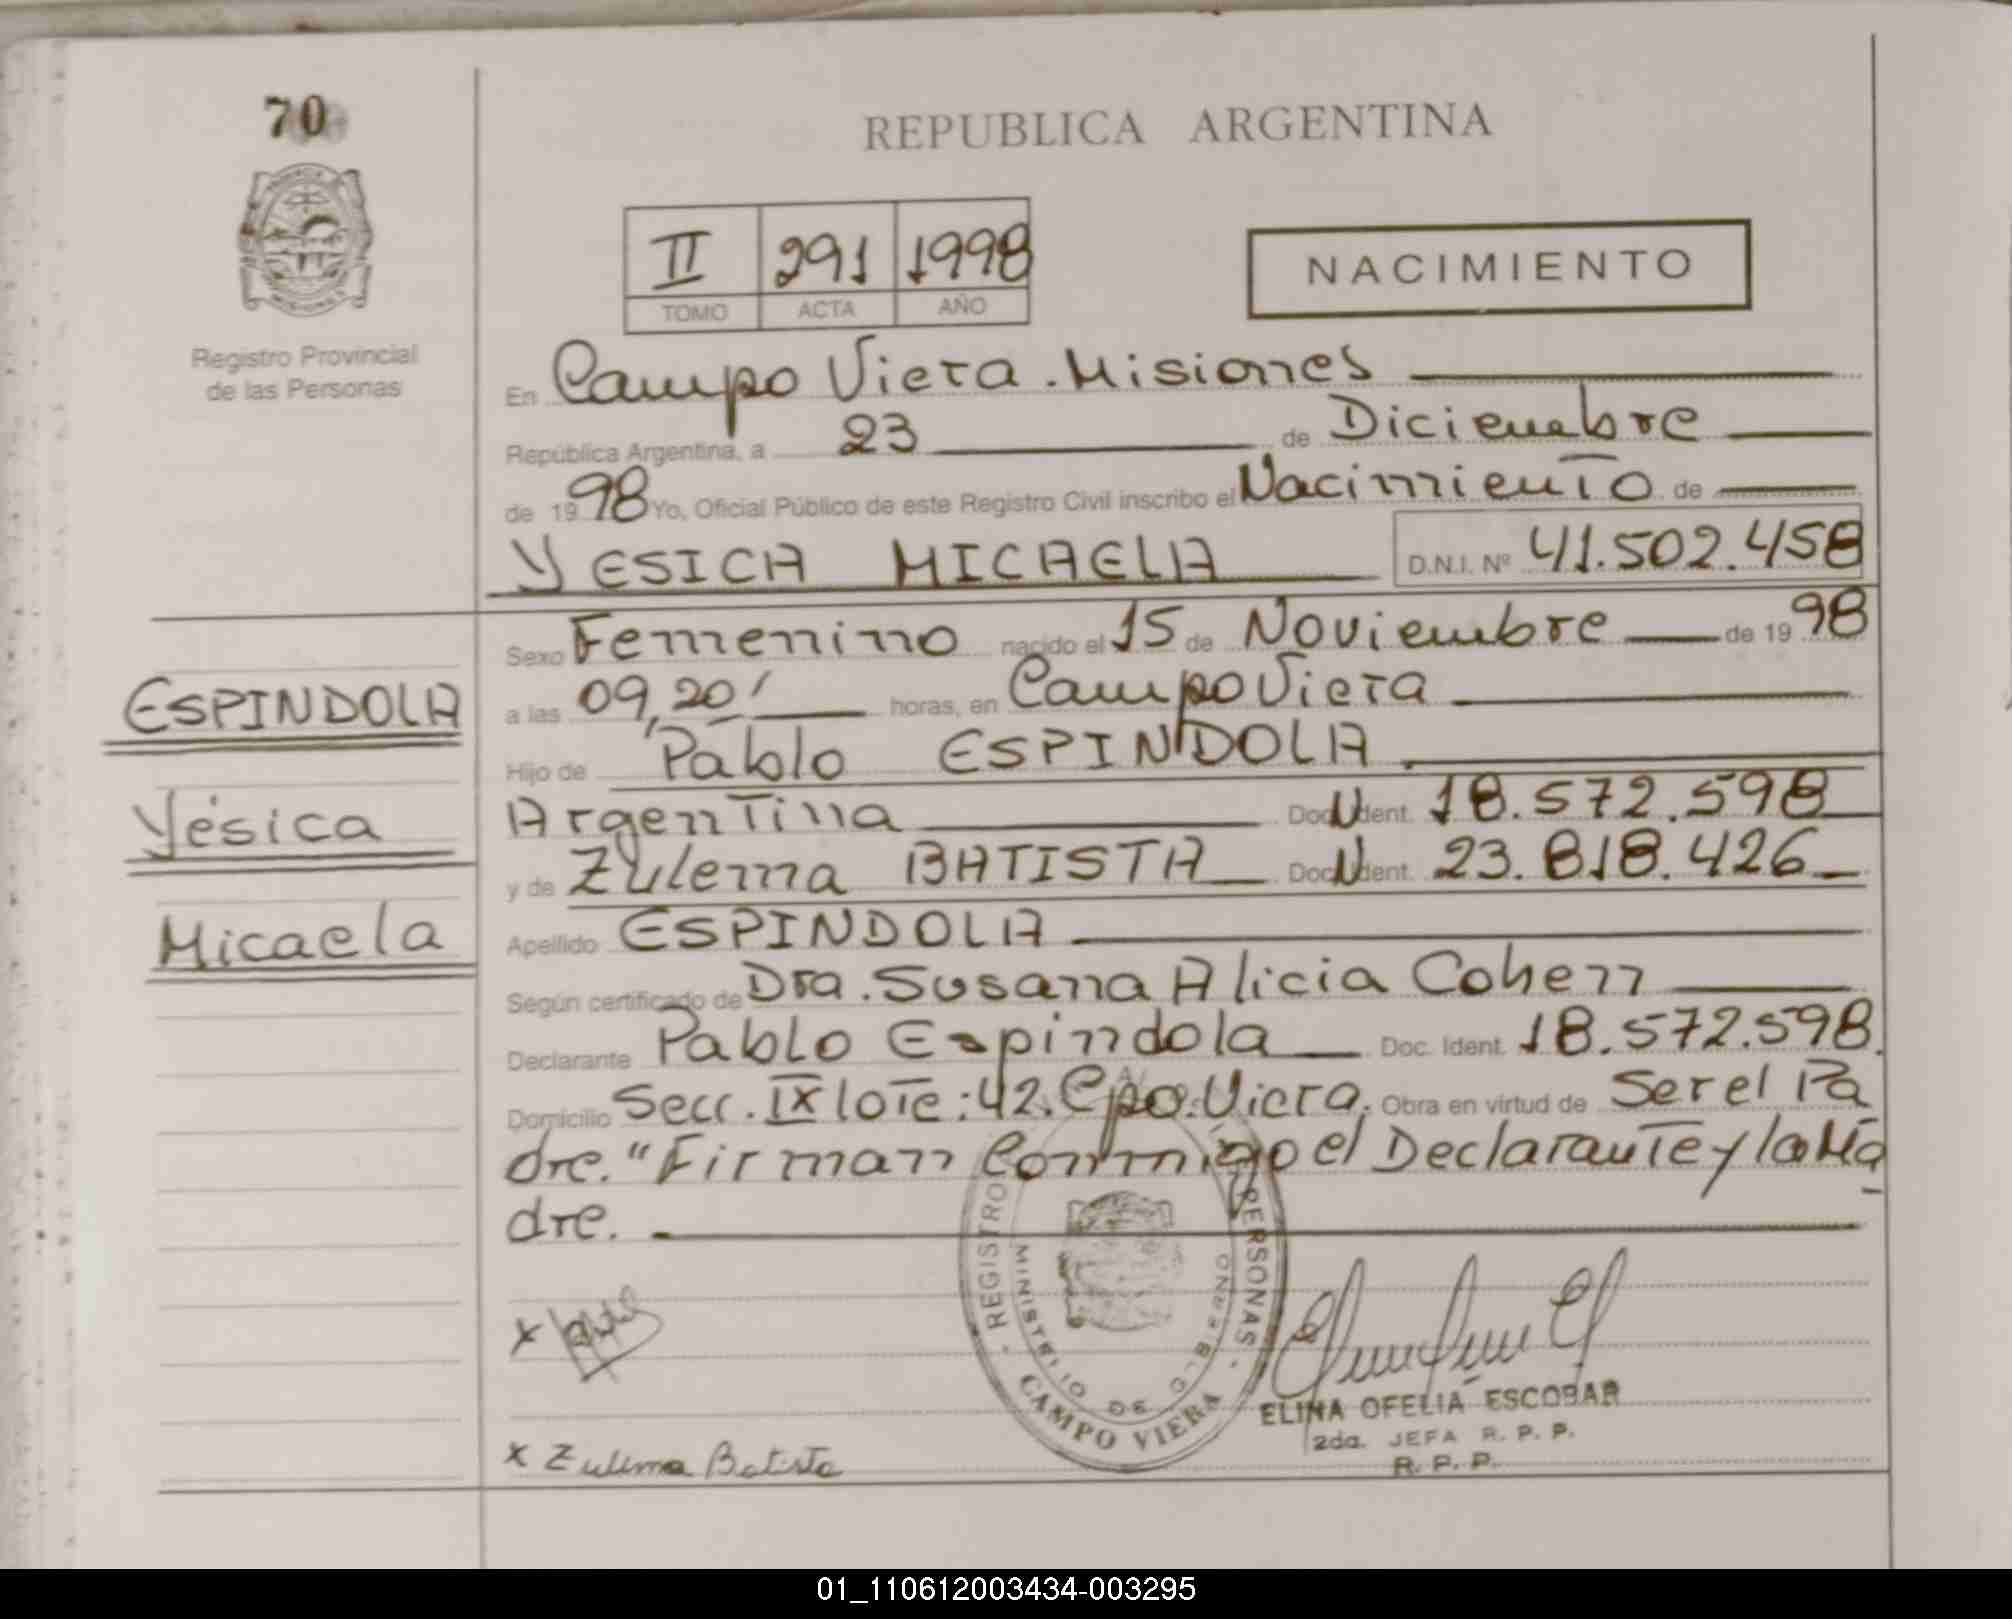 70
REPUBLICA ARGENTINA
II 291 1998
TOMO ACTA AÑO
NACIMIENTO
Registro Provincial
de las Personas
En Campo Viera. Misiones
República Argentina, a 23 de Diciembre
de 1998 Yo, Oficial Público de este Registro Civil inscribo el Nacimiento de
YESICA MICAELA D.N.I. Nº 41.502.458
Sexo Femenino nacido el 15 de Noviembre de 1998
a las 09,20' horas, en Campo Viera
Hijo de Pablo ESPINDOLA
Argentina Doc. Ident. 18.572.598
y de Zulema BATISTA Doc. Ident. 23.818.426
Apellido ESPINDOLA
Según certificado de Dra. Susana Alicia Cohen
Declarante Pablo Espindola Doc. Ident. 18.572.598.
Domicilio Secc. IX lote: 42. Cpo. Viera. Obra en virtud de Ser el Pa
dre. "Firman Conmigo el Declarante y la Ma
dre.
ESPINDOLA
Yésica
Micaela
REGISTRO PERSONAS
MINISTERIO DE GOBIERNO
CAMPO VIERA
x
x Zulema Batista
ELINA OFELIA ESCOBAR
2da. JEFA R. P. P.
R. P. P.
01_110612003434-003295